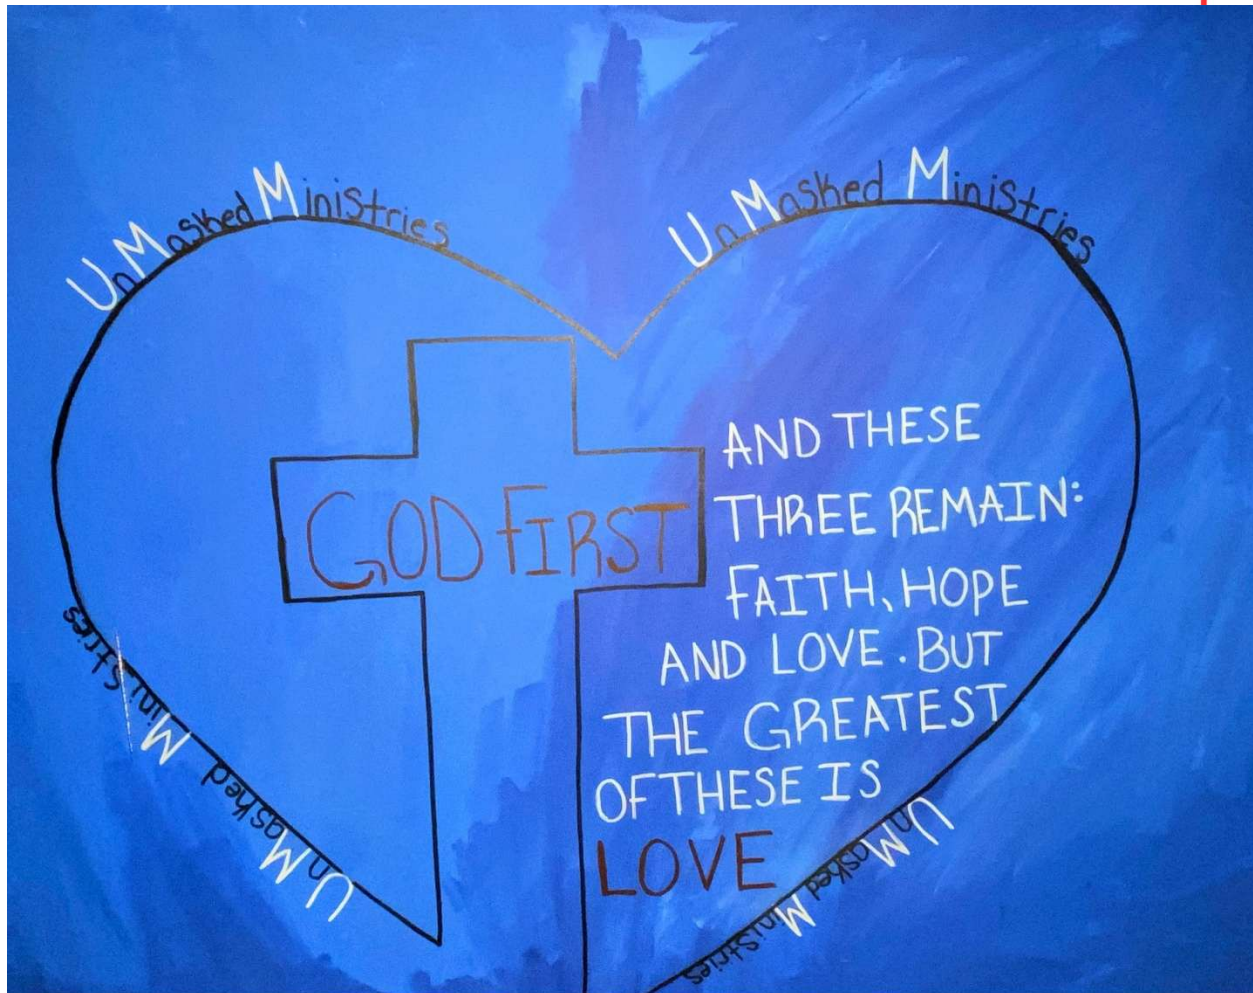 UnMasked Ministries
UnMasked Ministries
GOD FIRST
AND THESE
THREE REMAIN:
FAITH, HOPE
AND LOVE. BUT
THE GREATEST
OF THESE IS
LOVE
UnMasked Ministries
UnMasked Ministries